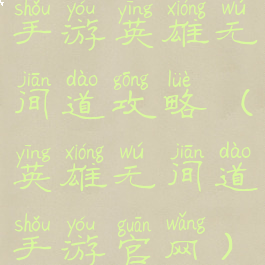 shǒu yóu yīng xióng wú
手游英雄无
jiān dào gōng lüè
间道攻略（
yīng xióng wú jiān dào
英雄无间道
shǒu yóu guān wǎng
手游官网）